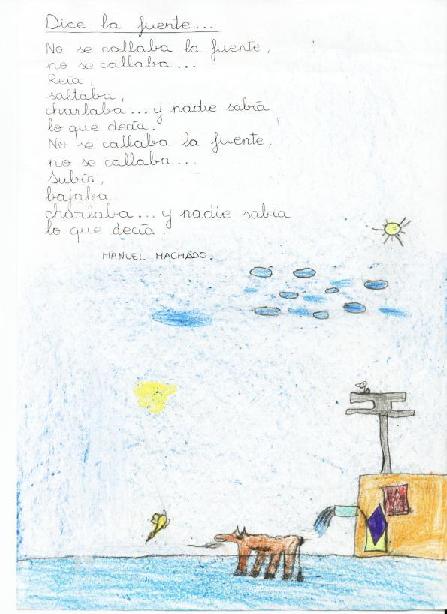 Dice la fuente...
No se callaba la fuente,
no se callaba...
Reía,
saltaba,
charlaba... y nadie sabía
lo que decía.
No se callaba la fuente,
no se callaba...
Subía,
bajaba
charlaba... y nadie sabia
lo que decía
MANUEL MACHADO.